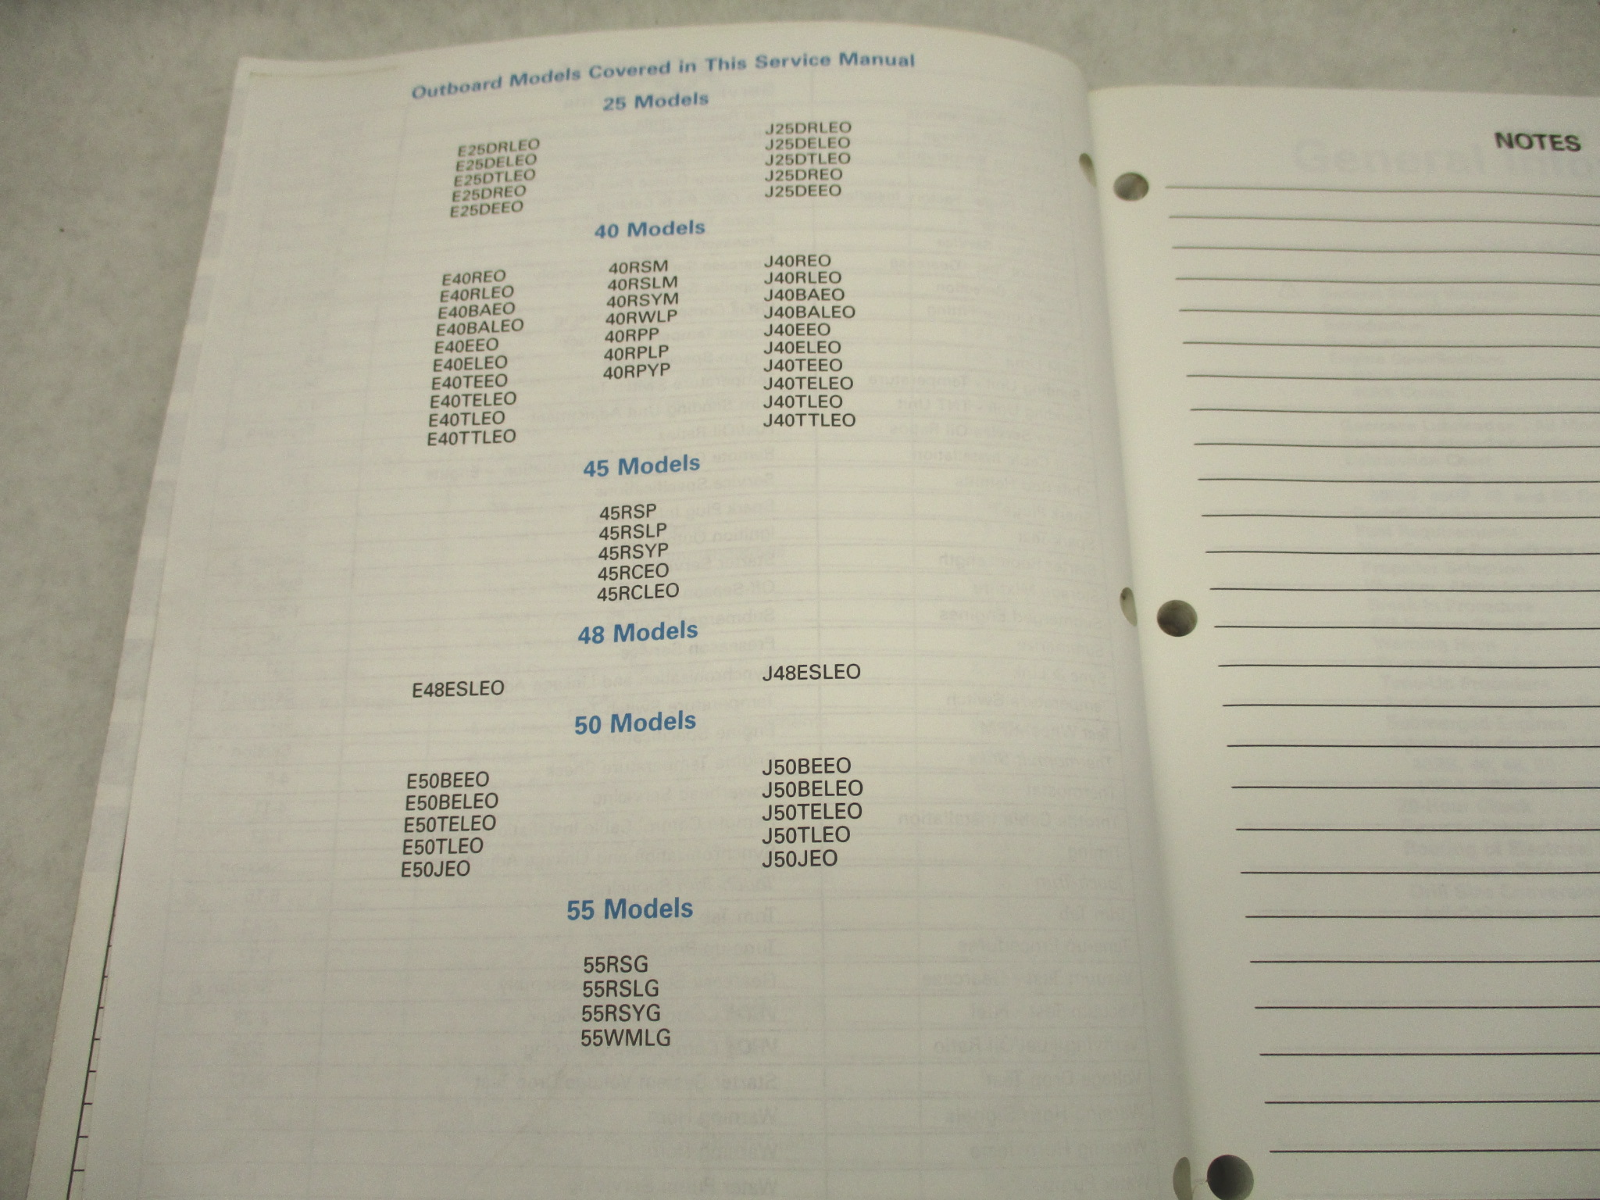 Outboard Models Covered in This Service Manual
25 Models
E25DRLEO
E25DELEO
E25DTLEO
E25DREO
E25DEEO
J25DRLEO
J25DELEO
J25DTLEO
J25DREO
J25DEEO
40 Models
E40REO
E40RLEO
E40BAEO
E40BALEO
E40EEO
E40ELEO
E40TEEO
E40TELEO
E40TLEO
E40TTLEO
40RSM
40RSLM
40RSYM
40RWLP
40RPP
40RPLP
40RPYP
J40REO
J40RLEO
J40BAEO
J40BALEO
J40EEO
J40ELEO
J40TEEO
J40TELEO
J40TLEO
J40TTLEO
45 Models
45RSP
45RSLP
45RSYP
45RCEO
45RCLEO
48 Models
E48ESLEO
J48ESLEO
50 Models
E50BEEO
E50BELEO
E50TELEO
E50TLEO
E50JEO
J50BEEO
J50BELEO
J50TELEO
J50TLEO
J50JEO
55 Models
55RSG
55RSLG
55RSYG
55WMLG
NOTES